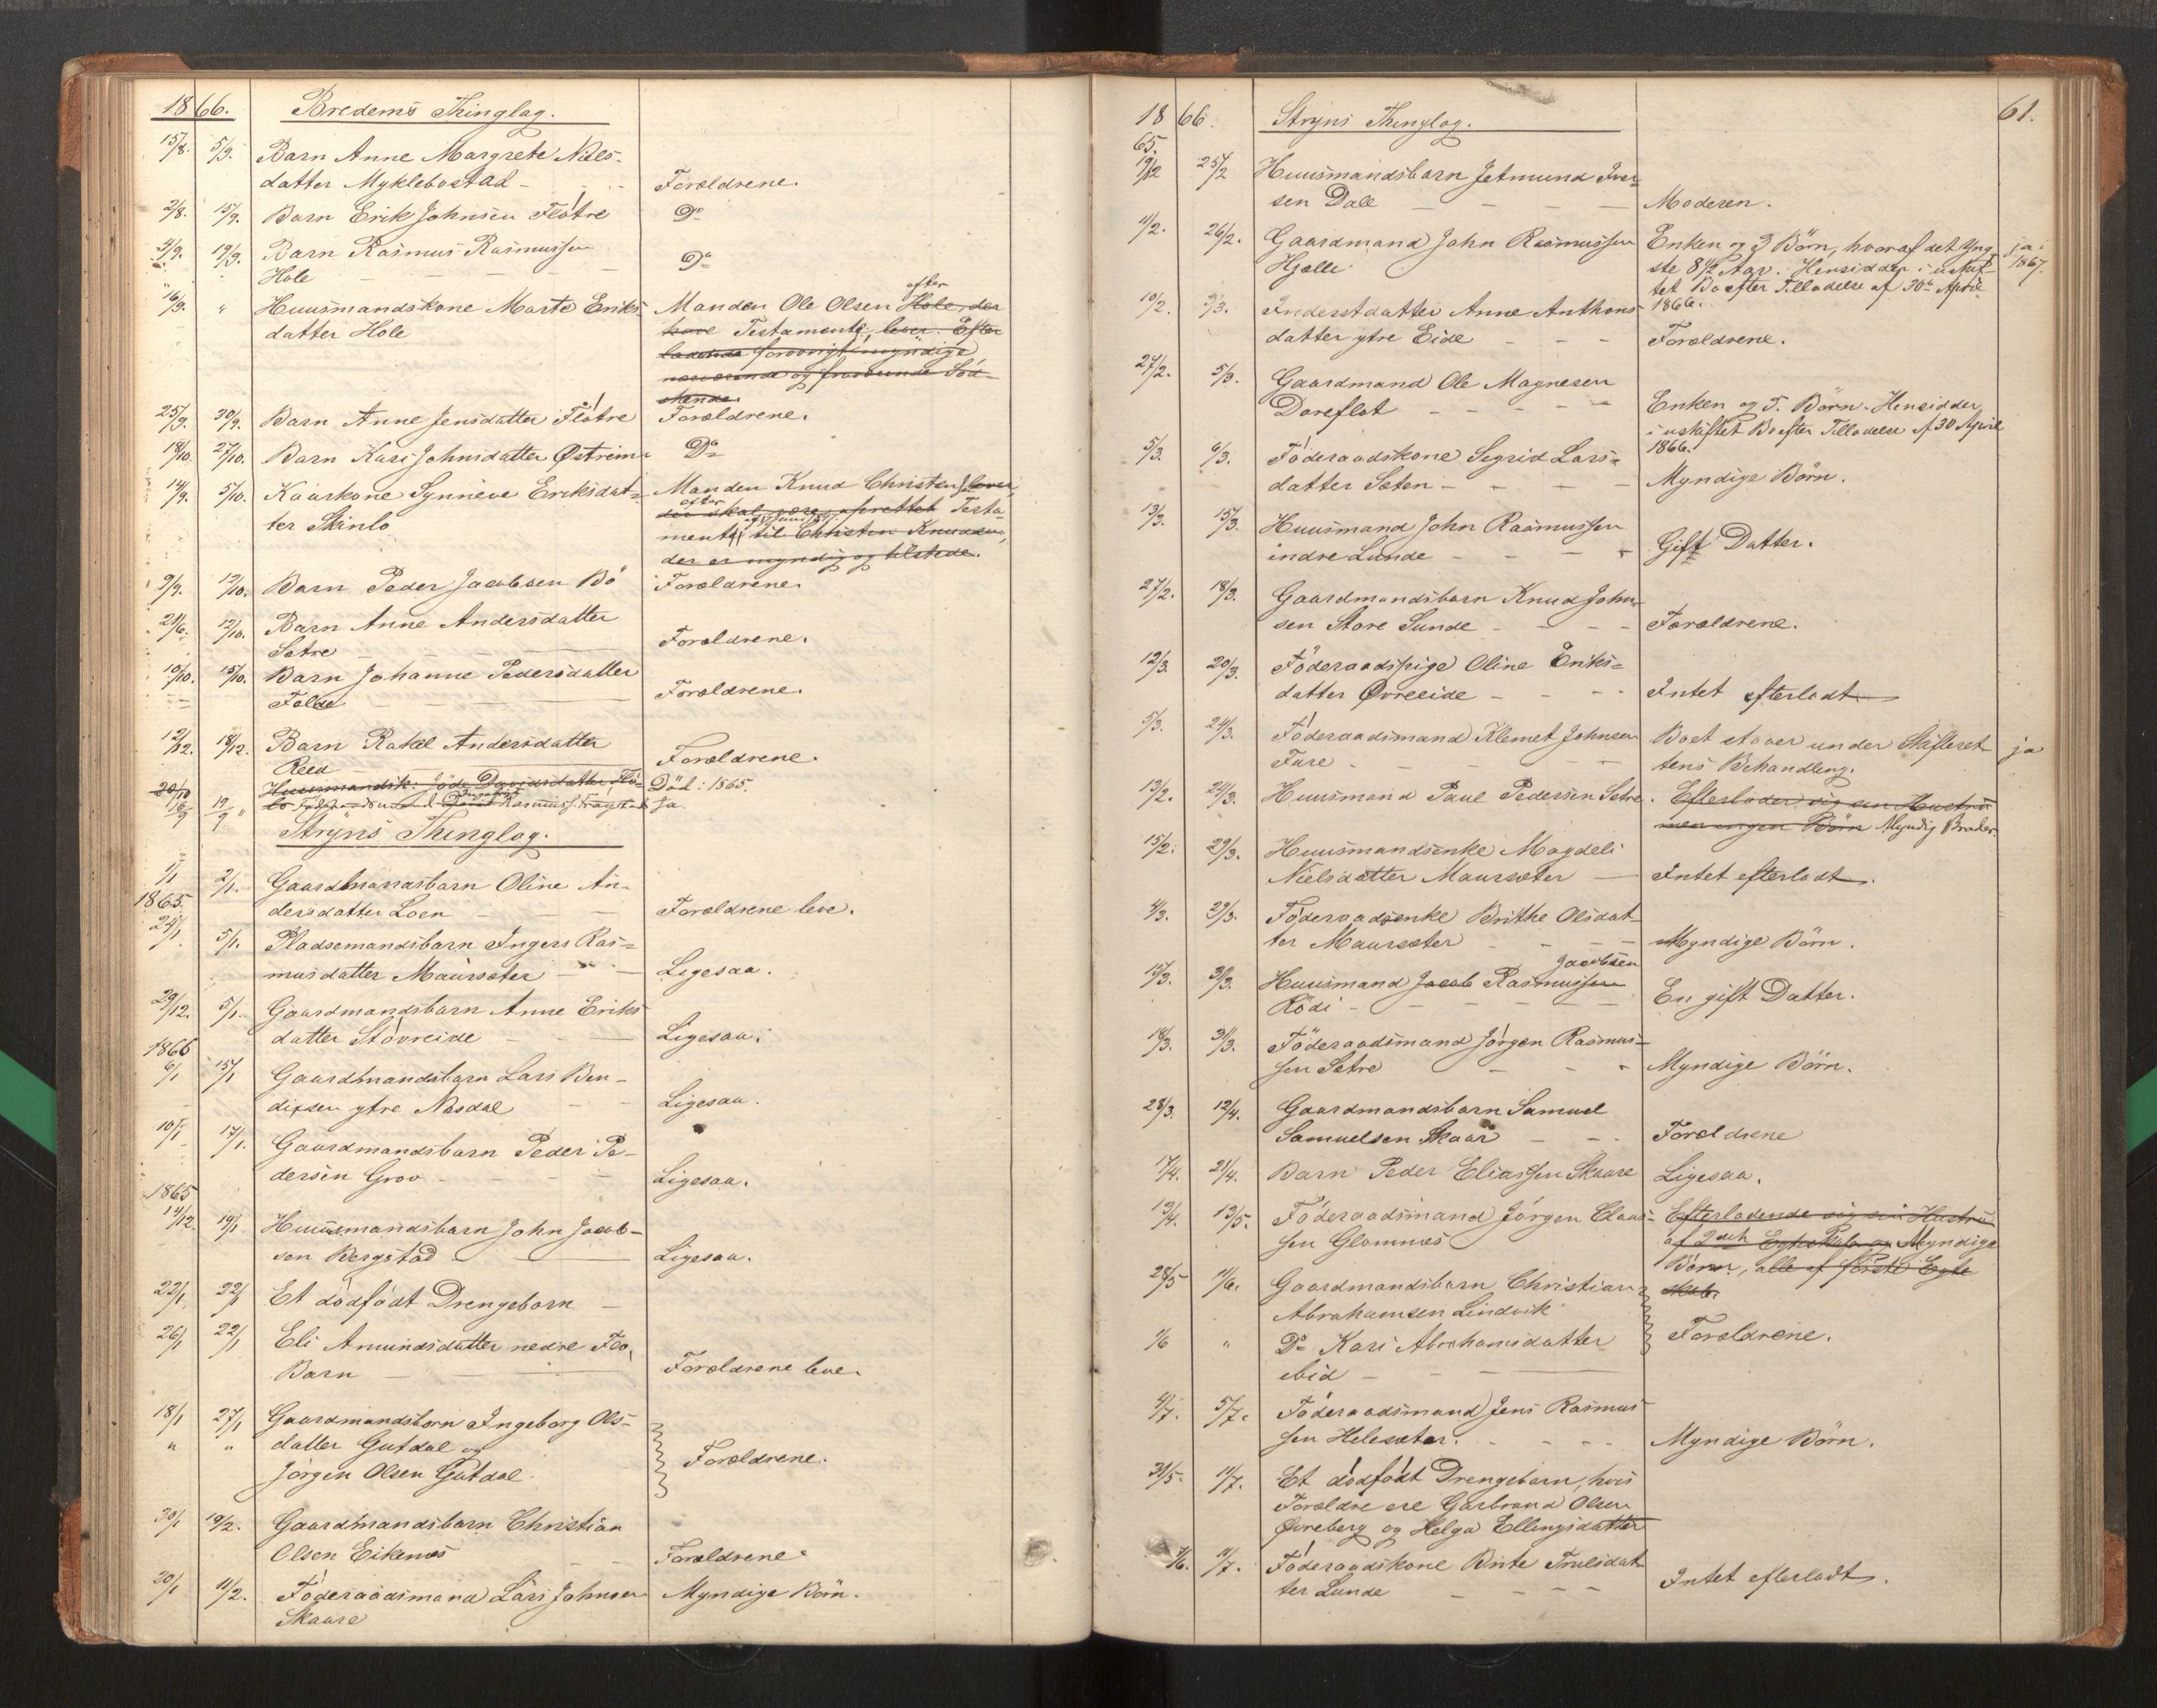 1866. Bredems Thinglag.
15/8. 5/9. Barn Anne Margrete Niels-
datter Myklebostad - Forældrene.
2/8. 15/9. Barn Erik Johnsen Flötre Do
4/9. 19/9. Barn Rasmus Rasmussen
Hole Do
16/9. " Huusmandskone Marte Eriks- Manden Ole Olsen Hole, der efter
datter Hole have Testamente, lever. Efter
ladende forøvrigt myndige
nærværende og fraværende Söd-
skende.
25/9. 30/9. Barn Anne Jensdatter Flötre Forældrene.
18/10. 27/10. Barn Kari Johnsdatter Østrem Do
14/9. 5/10. Kaarkone Synneve Eriksdat- Manden Knud Christensen lever,
efter
ter Skinlo der skal være oprettet Testa-
mente til Christen Knudsen,
der er myndig og tilstede.
9/9. 12/10. Barn Peder Jacobsen Bö Forældrene.
21/6. 12/10. Barn Anne Andersdatter
Sætre Forældrene.
10/10. 15/10. Barn Johanne Pedersdatter
Folde Forældrene.
12/12. 18/12. Barn Rakel Andersdatter
Reed Forældrene.
20/10 Huusmandsk. Jöde Davidsdatter Flo- Död: 1865.
16/9 19/9 Rasmuss. ja.
Stryns Thinglag.
1/1 2/1. Gaardmandsbarn Oline An-
1865. dersdatter Loen Forældrene leve.
24/1 5/1. Pladsemandsbarn Ingers Ras-
musdatter Maursæter Ligesaa.
29/12. 5/1. Gaardmandsbarn Anne Eriks
datter Stövreide Ligesaa.
1866
6/1 15/1 Gaardmandsbarn Lars Ben-
dixsen ytre Næsdal Ligesaa.
10/1 17/1. Gaardmandsbarn Peder Pe-
dersen Grov Ligesaa.
1865
14/12. 19/1 Huusmandsbarn John Jacob-
sen Bergstad Ligesaa.
22/1 22/1 Et dödfödt Drengebarn
26/1 22/1 Eli Amundsdatter nedre Flo,
Barn Forældrene leve.
18/1 27/1 Gaardmandsbarn Ingeborg Ols-
" " datter Gutdal og
Jörgen Olsen Gutdal. Forældrene.
30/1 10/2. Gaardmandsbarn Christian
Olsen Eikenæs Forældrene
20/1 11/2. Föderaadsmand Lars Johnsen Myndige Börn.
Skaare
61.
1866. Stryns Thinglag.
65.
19/12 25/2 Huusmandsbarn Jetmund Iver-
sen Dale Moderen.
11/2. 26/2. Gaardmand John Rasmussen Enken og 3 Börn, hvoraf det Yng- ja:
Hjelle ste 8 1/2 Aar. Hensidder i uskif- 1867.
tet Bo efter Tilladelse af 30te April
10/2. 3/3. Inderstdatter Anne Anthons 1866.
datter ytre Eide Forældrene.
27/2. 5/3. Gaardmand Ole Magnesen
Doreflot Enken og 5. Börn. Hensidder
i uskiftet Bo efter Tilladelse af 30 April
5/3. 6/3. Föderaadskone Sigrid Lars- 1866.
datter Sæten Myndige Börn.
13/3. 15/3. Huusmand John Rasmussen
indre Lunde Gift Datter.
27/2. 18/3. Gaardmandsbarn Knud John-
sen Store Sunde Forældrene.
12/3. 20/3. Föderaadspige Oline Eriks-
datter Øvreeide Intet efterladt
5/3. 24/3. Föderaadsmand Klemet Johnsen Boet staaer under Skifteret- ja
Fure tens Behandling.
13/2. 24/3. Huusmand Paul Pedersen Sætre. Efterlader sig en Hustru
men ingen Börn Myndig Broder.
15/2. 29/3. Huusmandsenke Magdeli
Nielsdatter Maursæter Intet efterladt.
4/3. 29/3. Föderaadsenke Brithe Olsdat-
ter Maursæter Myndige Börn.
Jacobsen
15/3. 31/3. Huusmand Jacob Rasmussen
Rödi En gift Datter.
18/3. 31/3. Föderaadsmand Jörgen Rasmus-
sen Sætre Myndige Börn.
28/3. 12/4. Gaardmandsbarn Samuel
Samuelsen Skaar Forældrene
17/4. 21/4. Barn Peder Eliassen Skaare Ligesaa.
13/4. 13/5. Föderaadsmand Jörgen Claus- Efterladende sig en Hustru
sen Glomnæs af 2det Egteskab og Myndige
Börn, alle af förste Egte
28/5 11/6. Gaardmandsbarn Christian skab.
Abrahamsen Lindvik
1/6 " Do Kari Abrahamsdatter Forældrene.
ibid
4/7. 5/7. Föderaadsmand Jens Rasmus-
sen Helesæter. Myndige Börn.
31/5. 11/7. Et dödfödt Drengebarn, hvis
Forældre ere Garbrand Olsen
Øvreberg og Helga Ellingsdatter
7/6. 11/7. Föderaadskone Birte Trulsdat-
ter Lunde Intet efterladt.